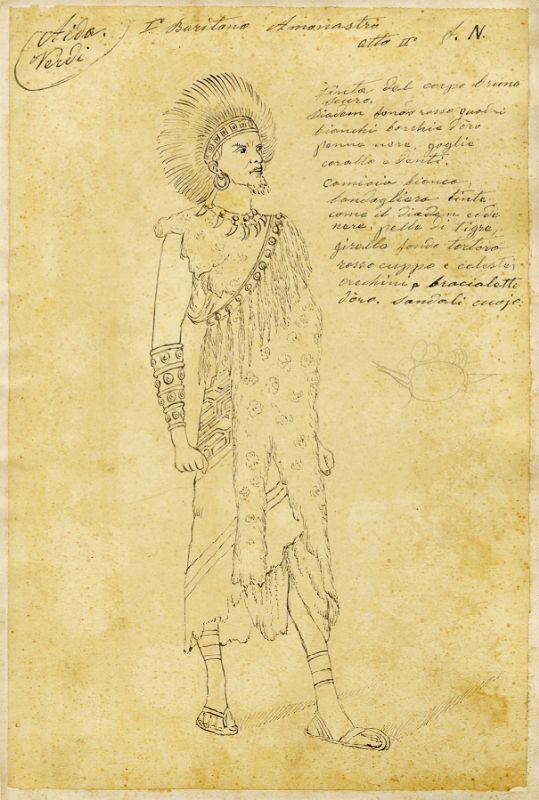 Aida.
Verdi
I° Baritono Amonastro
atto II° N.
Tinta del corpo bruno
scuro.
Diadem fondo rosso quadri
bianchi borchie d'oro
penne nere, goglie
corallo e denti.
Camicia bianca,
bandagliera tinta
come il diadem code
nere, pelle di tigre,
girello fondo tortora
rosso cuppo e celeste,
orecchini e bracialetti
d'oro. Sandali cuojo.